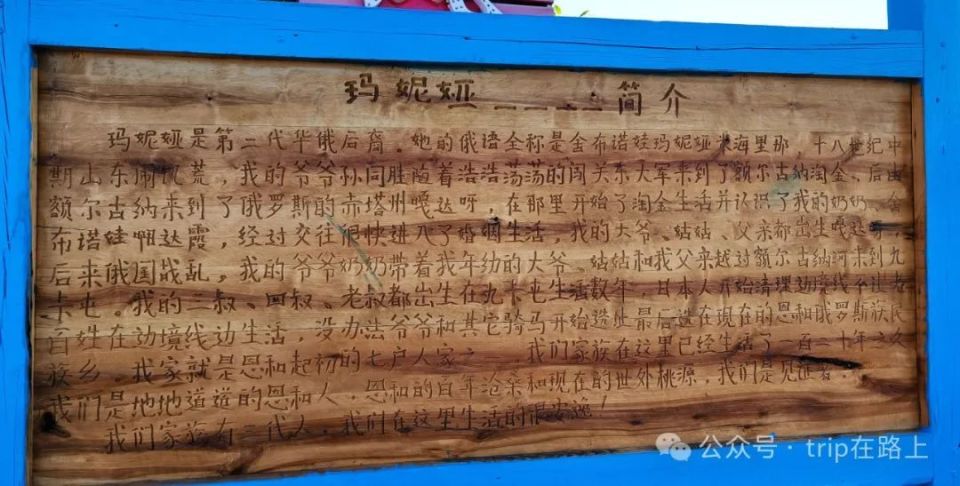 玛妮娅————简介
玛妮娅是第二代华俄后裔。她的俄语全称是金布诺娃玛妮娅 海里那，十八世纪中
期山东闹饥荒，我的爷爷孙同胜随着浩浩荡荡的闯关东大军来到了额尔古纳淘金、后由
额尔古纳来到了俄罗斯的赤塔州嘎达呀，在那里开始了淘金生活并认识了我的奶奶、金
布塔娃 达霞，经过交往很快进入了婚姻生活，我的大爷、姑姑、父亲都出生嘎达呀，
后来俄国战乱，我的爷爷奶奶带着我年幼的大爷、姑姑和我父亲越过额尔古纳河来到九
卡屯。我的三叔、四叔、老叔都出生在九卡屯生活数年，日本人开始清理边境线不让老
百姓在边境线边生活，没办法爷爷和其它骑马开始选址最后选在现在的恩和俄罗斯族民
族乡。我家就是恩和起初的七户人家之 我们家族在这里已经生活了一百二十年之久
我们是地地道道的恩和人，恩和的百年沧桑和现在的世外桃源，我们是见证者。
我们家族有三代人，我们在这里生活的很安逸！
公众号·trip在路上